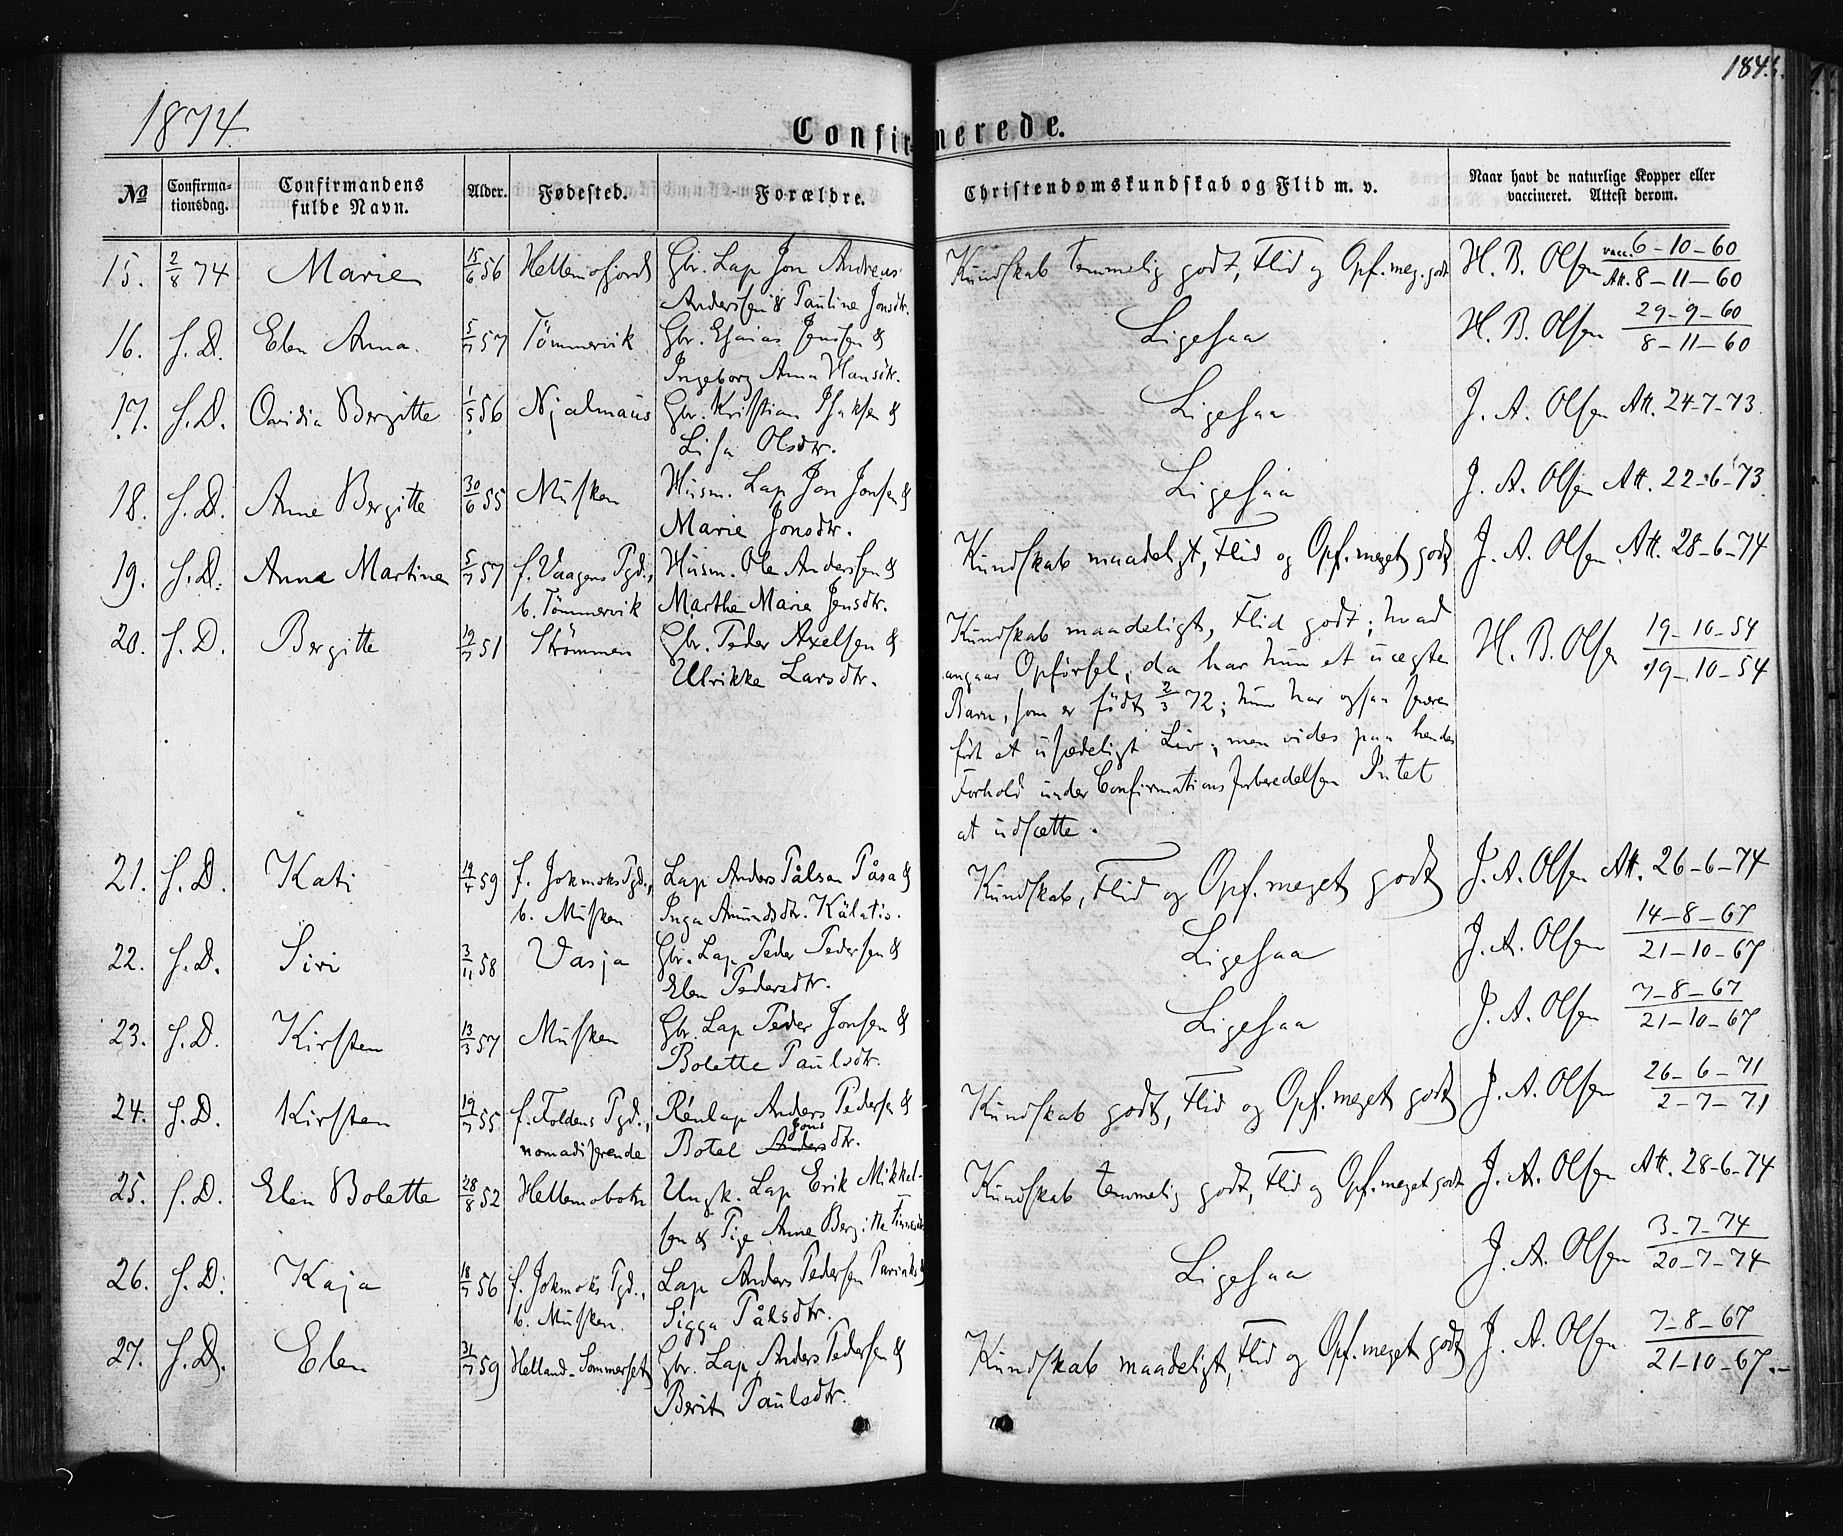 184
1874.
Confirmerede.
No Confirmationsdag. Confirmandens fulde Navn. Alder. Fødested. Forældre. Christendomskundskab og Flid m. v. Naar havt de naturlige Kopper eller vaccineret. Attest derom.
15. 2/8 74 Marie 15/6 56 Hellemofjord Gbr. Lap Jon Andreas Kundskab temmelig godt, Flid og Opf. meg. godt H. B. Olsen vacc. 6-10-60
Andersen & Pauline Jonsdtr. Att. 8-11-60
16. S. D. Elen Anna. 5/7 57 Tömmervik Gbr. Esaias Jenssen & Ligesaa H. B. Olsen 29-9-60
Ingeborg Anna Hansdtr. 8-11-60
17. S. D. Ovidia Bergitte 1/5 56 Njalmaus Gbr. Kristian Isaksen & Ligesaa J. A. Olsen Att. 24-7-73
Lisa Olsdtr.
18. S. D. Anne Bergitte 30/6 55 Musken Husm. Lap Jon Jonsen & Ligesaa J. A. Olsen Att. 22-6-73.
Marie Jonsdtr.
19. S. D. Anna Martina 5/7 57 f. Vaagens Pgd., Husm. Ole Anderssen & Kundskab maadeligt, Flid og Opf. meget godt J. A. Olsen Att. 28-6-74
b. Tömmervik Marthe Marie Jensdtr.
20. S. D. Bergitte 51 Strömmen Gbr. Peder Axelsen & Kundskab maadeligt, Flid godt; hvad H. B. Olsen 19-10-54
Ulrikke Larsdtr. angaar Opförsel, da har hun et uægte 19-10-54
Barn, som er födt 2/3 72; hun har ogsaa
fört et usædeligt Liv; men vides paa hendes
Forhold under Confirmationsforberedelsen Intet
at udsætte.
21. S. D. Kati 59 f. Jokmoks Pgd., Lap Anders Pålsen Påsa & Kundskab, Flid og Opf. meget godt J. A. Olsen Att. 26-6-74
b. Musken Inga Amundsdtr. Kälatis.
22. S. D. Siri 3/11 58 Vasja Gbr. Lap Peder Pedersen & Ligesaa J. A. Olsen 14-8-67
Elen Pedersdtr. 21-10-67
23. S. D. Kirsten 13/3 57 Musken Gbr. Lap Peder Jonsen & Ligesaa J. A. Olsen 7-8-67
Bolette Paulsdtr. 21-10-67.
24. S. D. Kirsten 19/7 55 f. Foldens Pgd., Rénlap Anders Pedersen & Kundskab godt, Flid og Opf. meget godt J. A. Olsen 26-6-71
nomadiserende Botel Anders Jons dtr. 2-7-71
25. S. D. Elen Bolette 28/8 52 Hellemobotn Ungk. Lap Erik Mikkel- Kundskab temmelig godt, Flid og Opf. meget godt J. A. Olsen Att. 28-6-74
sen & Pige Anne Bergitte
26. S. D. Kaja 18/7 56 f. Jokmoks Pgd., Lap Anders Pedersen & Ligesaa J. A. Olsen 3-7-74
b. Musken. Sigga Pålsdtr. 20-7-74
27. S. D. Elen 31/7 59 Helland-Sommerset Gbr. Lap Anders Pedersen & Kundskab maadeligt, Flid og Opf. meget godt J. A. Olsen 7-8-67
Berit Paulsdtr. 21-10-67.-